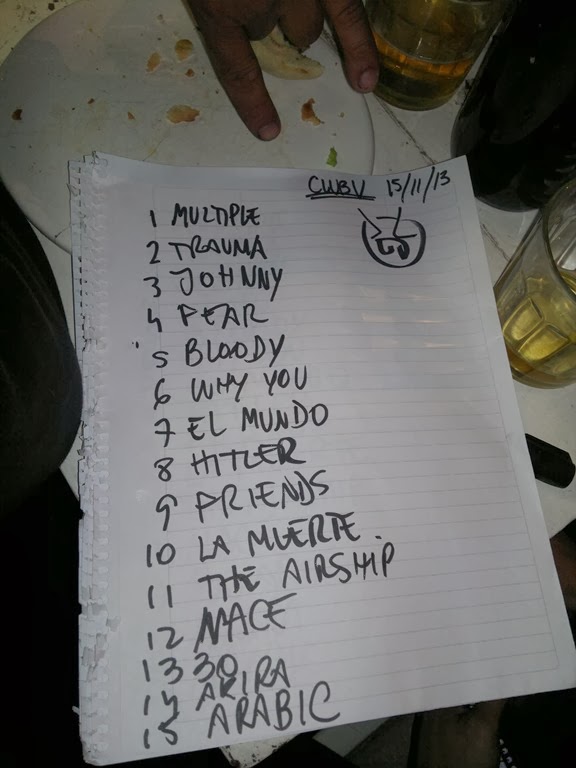 CWBV 15/11/13
1 MULTIPLE
2 TRAUMA
3 JOHNNY
4 FEAR
5 BLOODY
6 WHY YOU
7 EL MUNDO
8 HITLER
9 FRIENDS
10 LA MUERTE
11 THE AIRSHIP
12 MACE
13 30
14 AKIRA
15 ARABIC